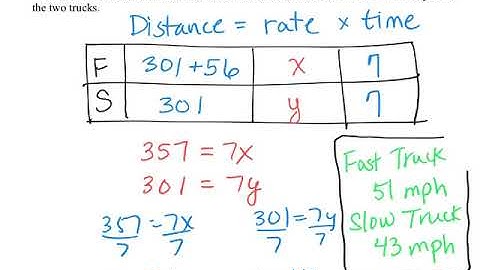 the two trucks.
Distance = rate × time
F 301+56 x 7
S 301 y 7
357 = 7x
301 = 7y
357/7 = 7x/7
301/7 = 7y/7
Fast Truck
51 mph
Slow Truck
43 mph